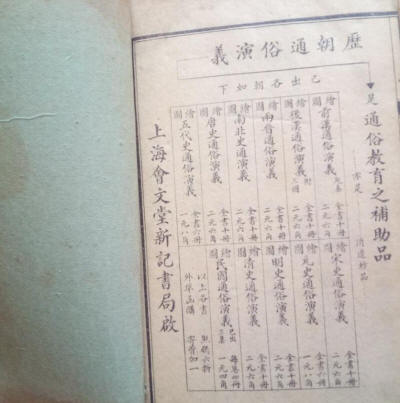 歷朝通俗演義
已出各朝如下
▼是通俗教育之補助品
亦是 消遣妙品
繪圖前漢通俗演義 全書十冊 二元六角
繪圖後漢通俗演義 附三國 全書十冊 二元六角
繪圖兩晉通俗演義 全書十冊 二元六角
繪圖南北史通俗演義 全書十冊 二元六角
繪圖唐史通俗演義 全書十冊 二元六角
繪圖五代史通俗演義 全書六冊 一元八角
繪圖宋史通俗演義 全書十冊 二元六角
繪圖元史通俗演義 全書六冊 一元八角
繪圖明史通俗演義 全書十冊 二元六角
繪圖清史通俗演義 全書十冊 二元六角
繪圖民國通俗演義 已出三集 每集四冊 一元四角
以上各書 外埠函購 寄費加一
上海會文堂新記書局啟